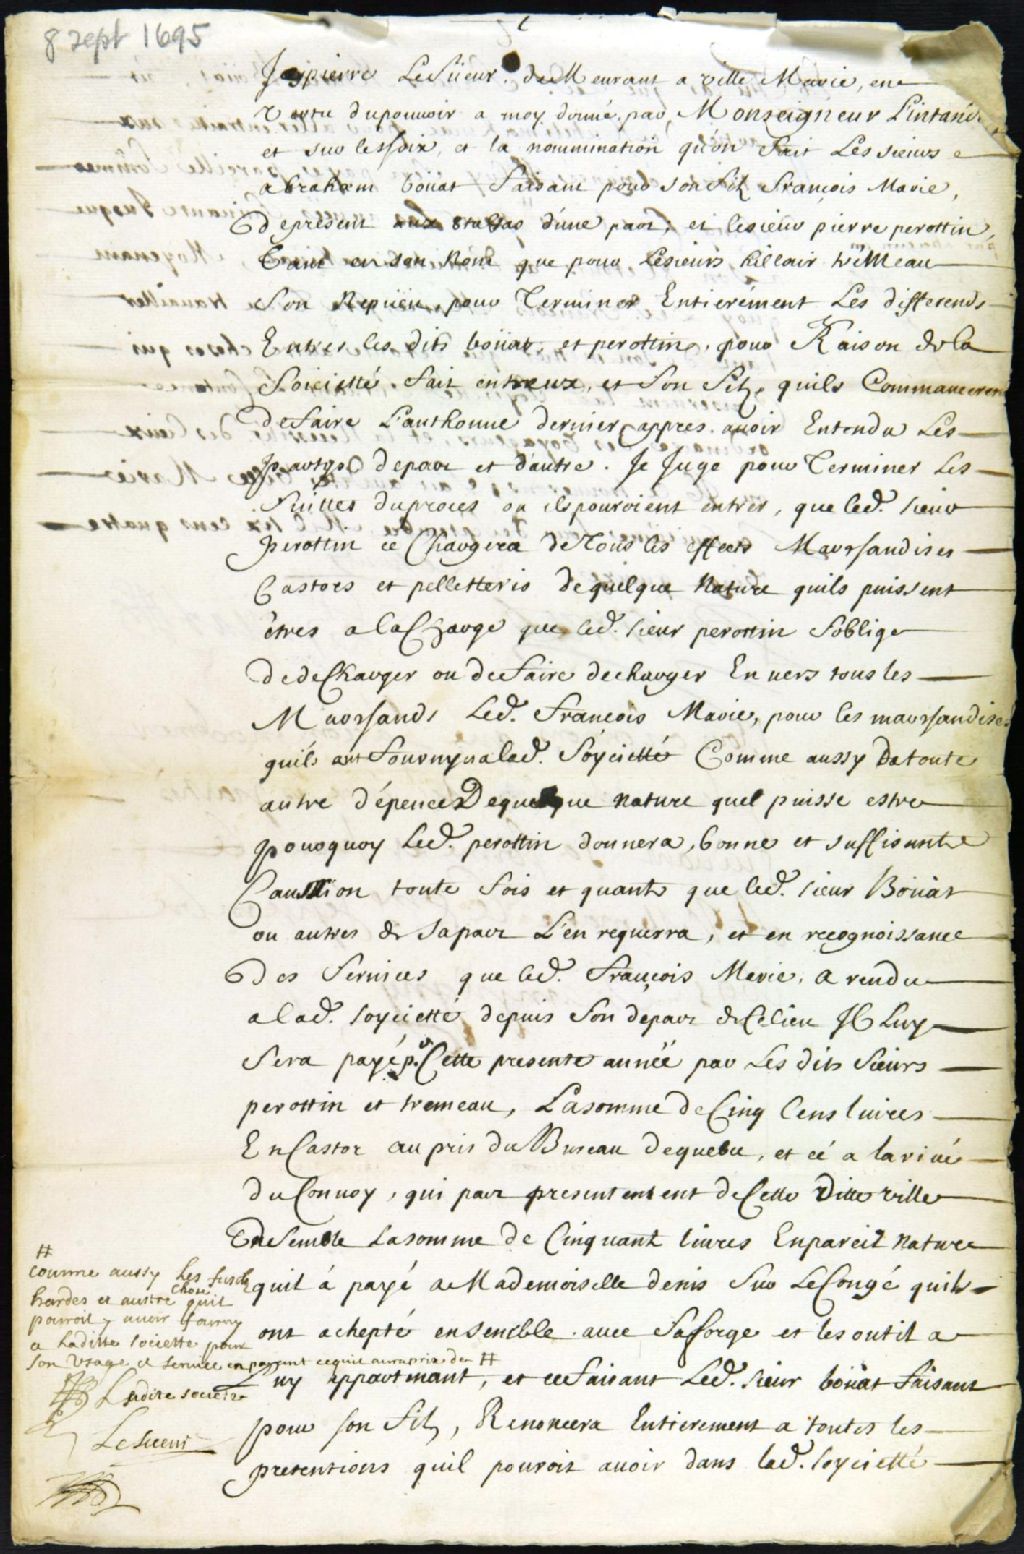 8 sept 1695
Je pierre LeSueur demeurant a ville Marie, en
Vertu dupouvoir a moy donné, par, Monseigneur L'intand.
et suv et la nommination qu'on fait Les sieurs
abraham boüat faisant pour son filz françois Marie,
depresent aux d'une part, et lesieur pierre perottin,
tant en son Nom que pour Lesieurs hillair tremeau
son Nepueu, pour Terminer Entierement Les differends
Entre les dits boüat, et perottin, pour Raison dela
Soicietté fait entreux, et son filz, quils Commancerent
defaire L'authonne dernier, appres avoir Entendu Les
partyes depart et d'autre. Je Juge pour Terminer Les
suittes duproces ou ilspouroient entrer, que led. sieur
perottin ce Chargera deTous les effects Marsandises
Castors et pelletteris de quelque Nature quils puissent
êtres a laCharge que led. sieur perottin soblige
dedeCharger ou defaire decharger Envers tous les
Marsands Led. francois Marie, pour les marsandises
quils ont fourny a lad. Soyciette Comme aussy Datoute
autre dépence Dequelque nature quel puisse estre
pouoquoy Led. perottin donnera, bonne et suffisante
Caustion toute fois et quants que led. sieur Boüat
ou autres de sapart L'en requerra, et en recognoissance
des services que led. françois Marie, a rendu
alad. soyciette depuis son depart deCelieu Il Luy
sera payé p.r Cette presente année par Les dits sieurs
perottin et tremeau, Lasomme deCinq Cens livres
En Castor au pris du Bureau dequebe, et cé a larivé
duConvoy, qui part presentement deCette ditte ville
Ensemble Lasomme de Cinquant livres Enpareil nature
quil à payé a Mademoiselle denis sur LeCongé quils
ont achepté ensemble avec saforge et lesoutil a
Luy appartenant, et cefaisant Led. sieur boüat faisant
pour son filz, Renoncera Entierement a toutes les
pretentions quil pouroit avoir dans lad. soyciette
#
comme aussy Les fusils
hardes et autre Chose quil
pouroit y avoir fourny
a laditte societte pour
son Vsage et service en payant cequil aura pris de #
Ladite societe
LeSueur